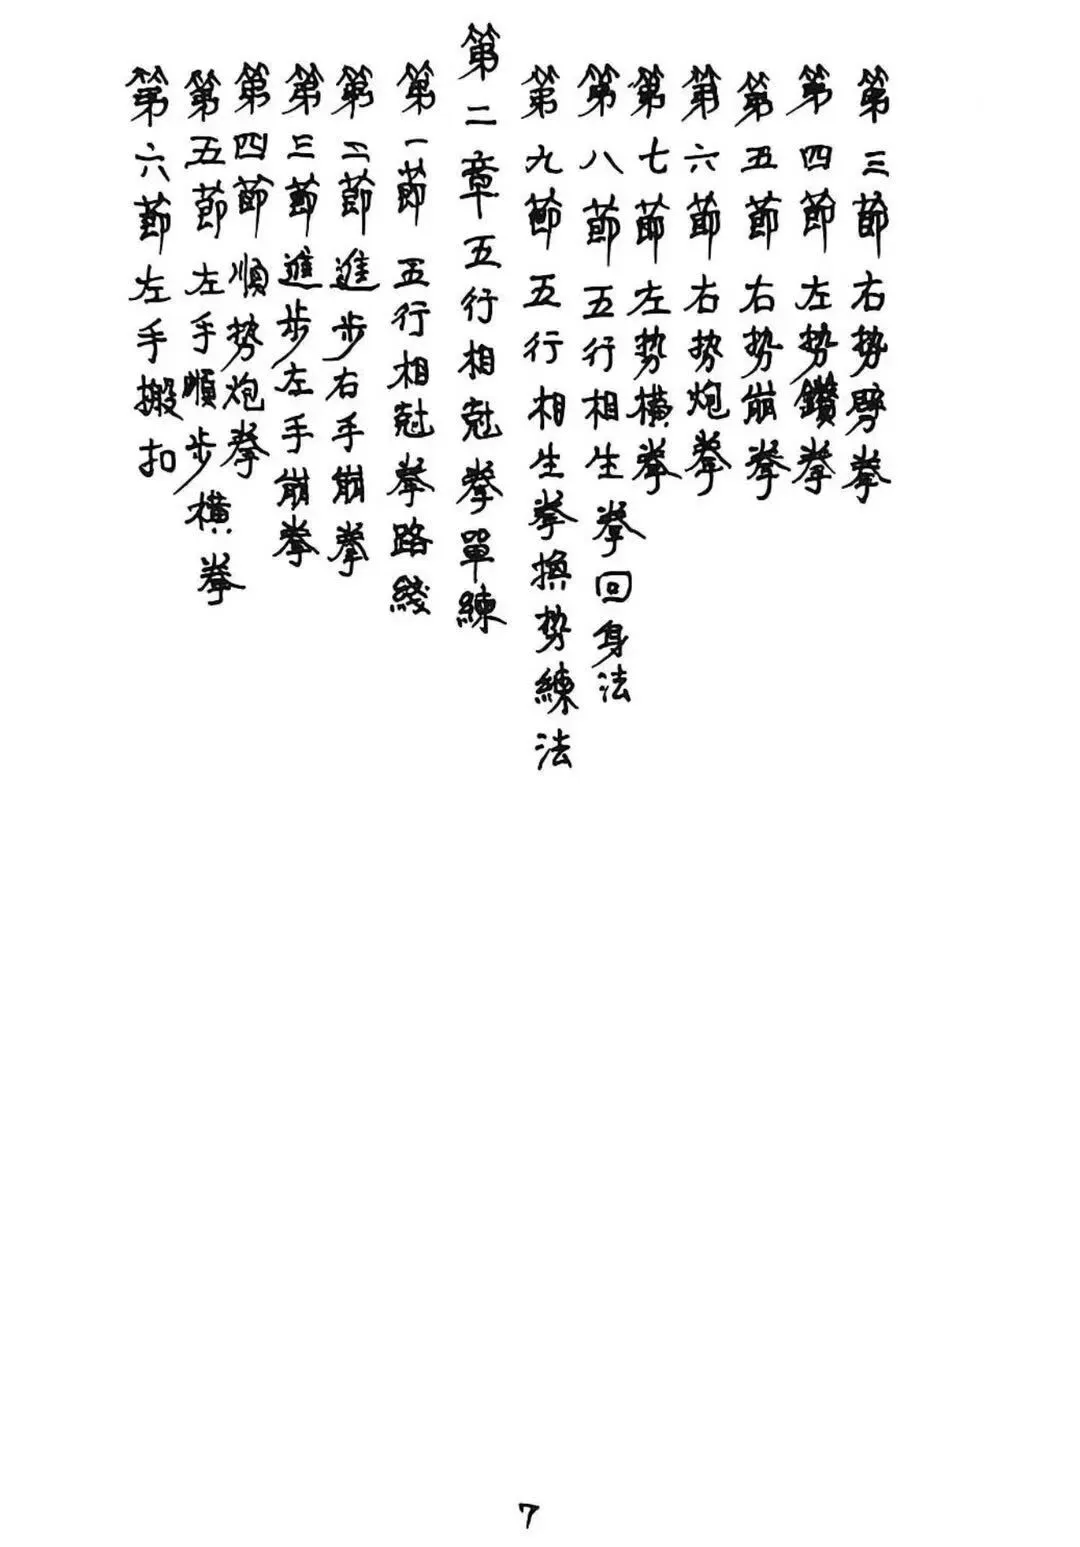 第三節右势劈拳
第四節左势鑽拳
第五節右势崩拳
第六節右势炮拳
第七節左势橫拳
第八節五行相生拳回身法
第九節五行相生拳換势練法
第二章五行相尅拳單練
第一節五行相尅拳路綫
第二節進步右手崩拳
第三節進步左手崩拳
第四節順势炮拳
第五節左手順步橫拳
第六節左手搬扣
7